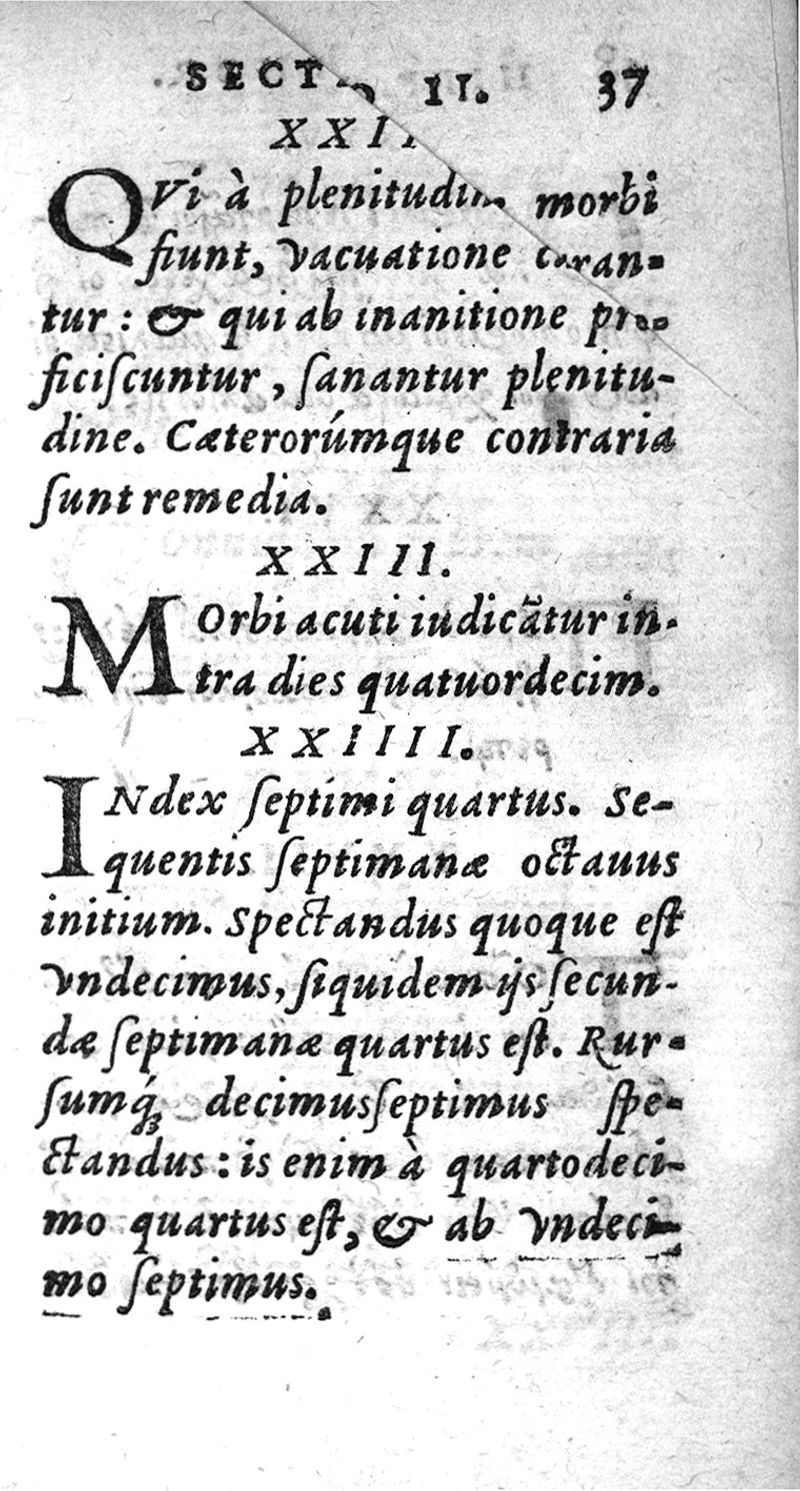 SECT. II. 37
XXII
QVi à plenitudine morbi
fiunt, vacuatione curan-
tur: & qui ab inanitione pro-
ficiſcuntur, ſanantur plenitu-
dine. Cæterorúmque contraria
ſunt remedia.
XXIII.
MOrbi acuti iudicãtur in-
tra dies quatuordecim.
XXIIII.
INdex ſeptimi quartus. Se-
quentis ſeptimanæ octauus
initium. Spectandus quoque eſt
vndecimus, ſiquidem ijs ſecun-
dæ ſeptimanæ quartus eſt. Rur-
ſumq́; decimusſeptimus ſpe-
ctandus: is enim à quartodeci-
mo quartus eſt, & ab vndeci-
mo ſeptimus.